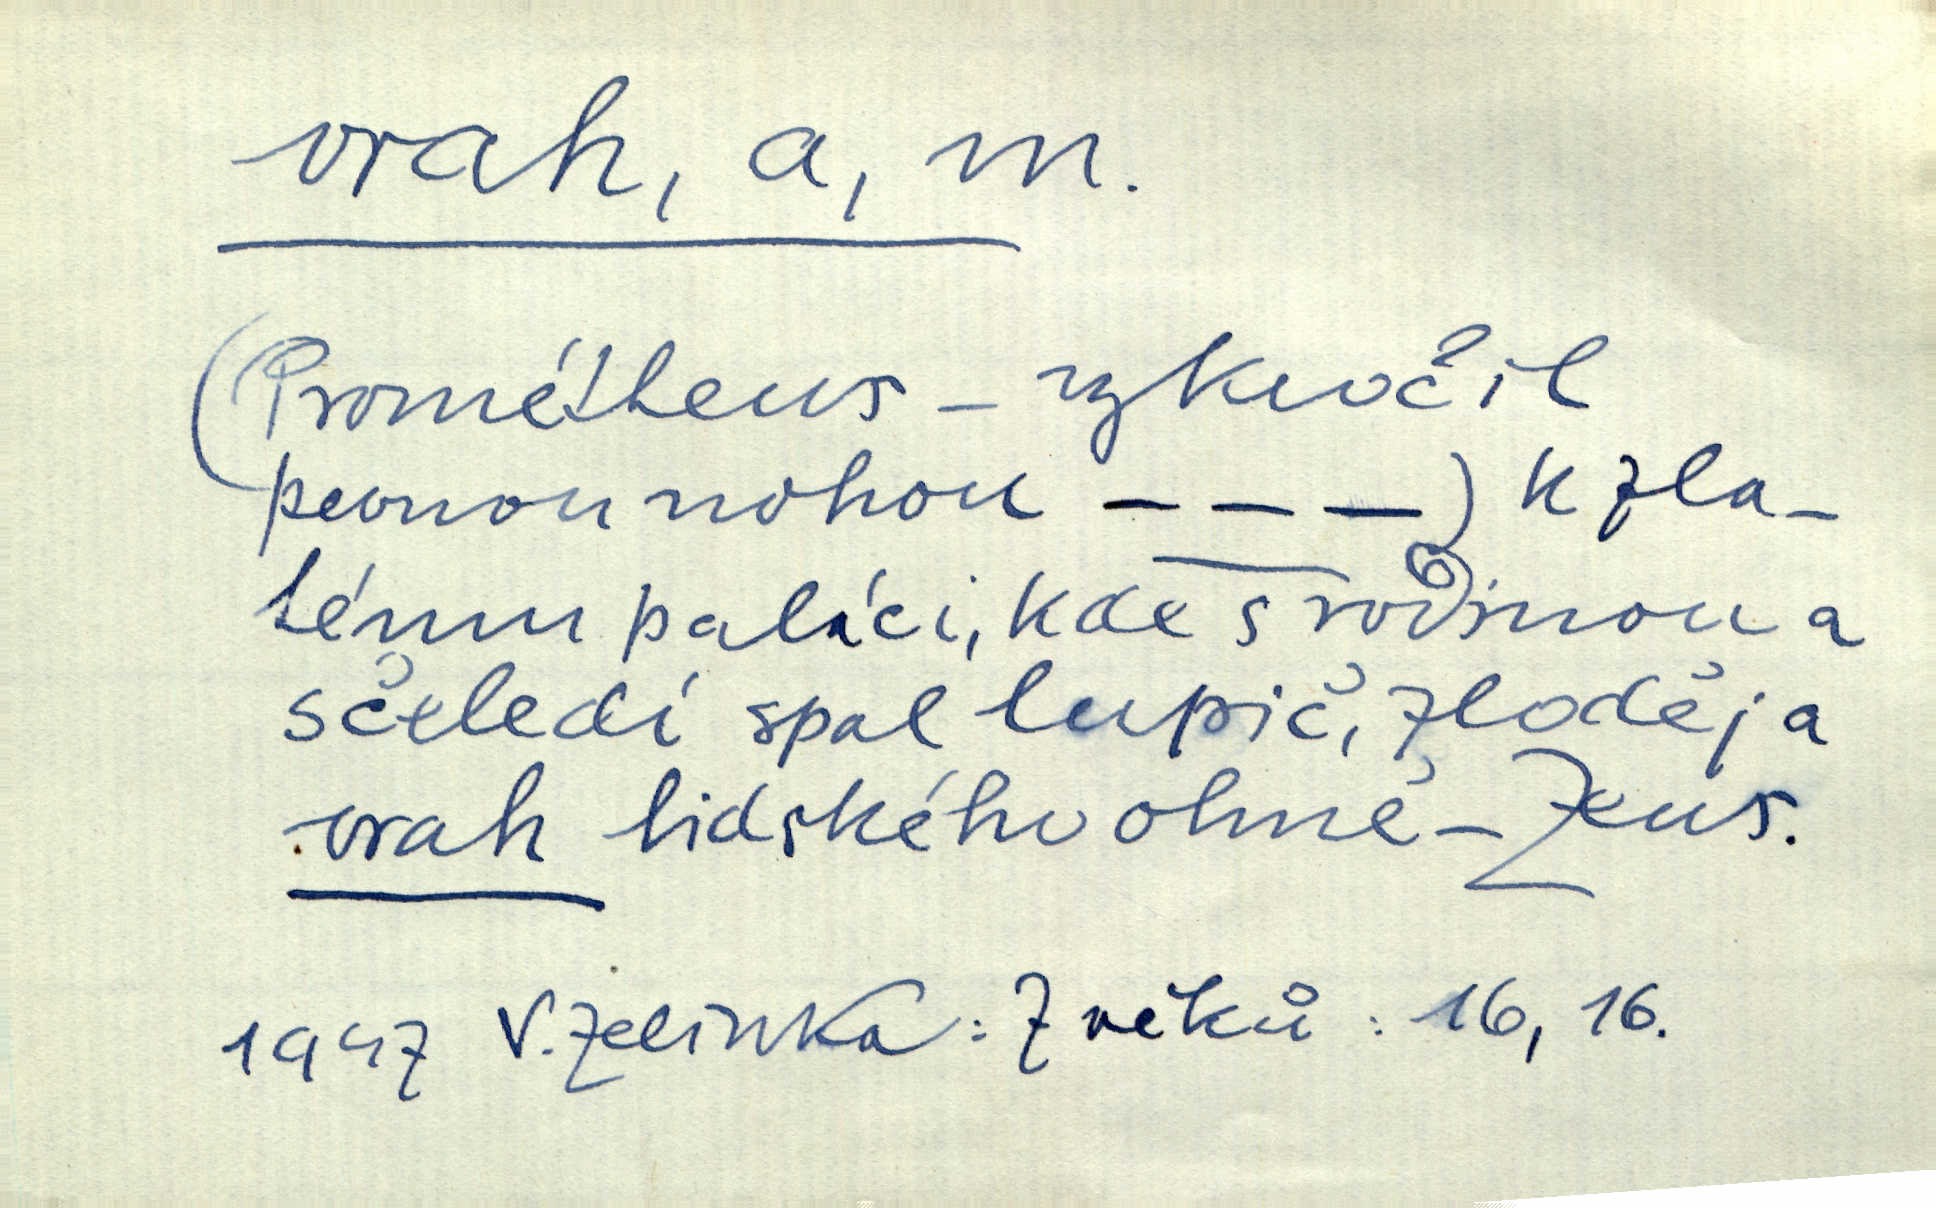 vrah, a, m.
(Prométheus – vykročil
pevnou nohou – – –) k zla-
tému paláci, kde s rodinou a
sčeledí spal lupič, zloděj a
vrah lidského ohně – Zeus.
1947 V. Zelinka: Z věků: 16, 16.